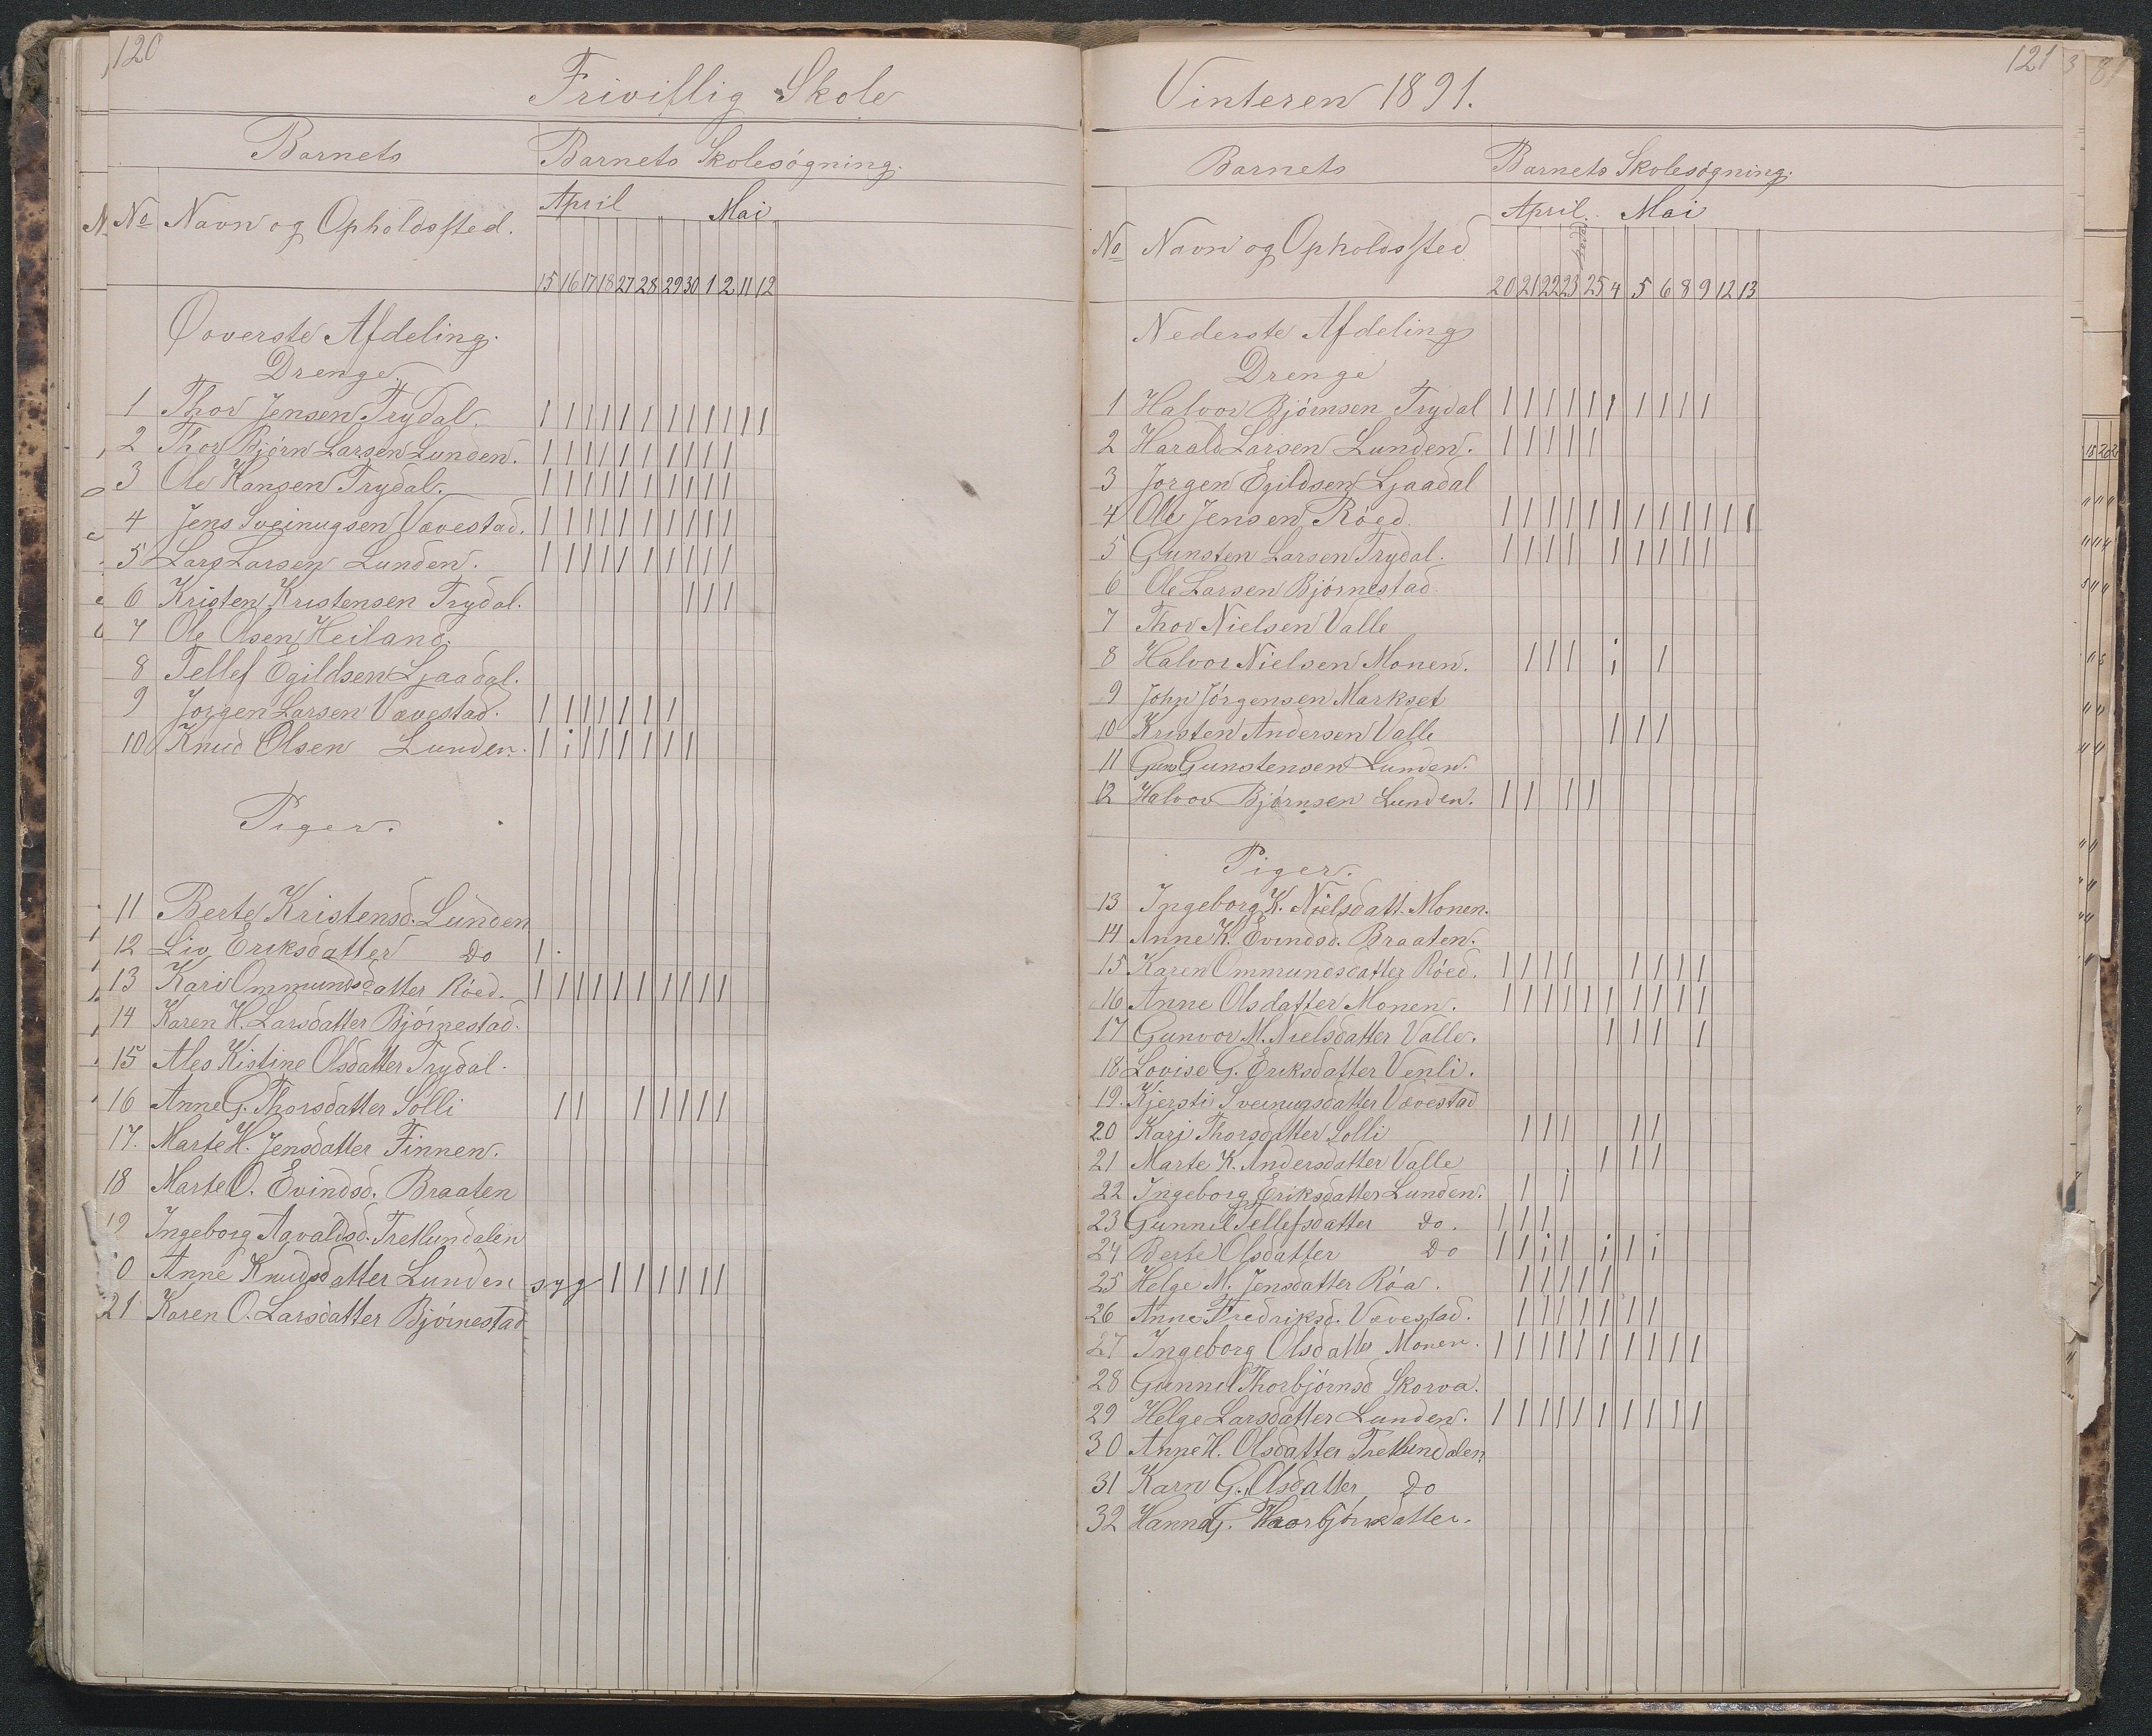 120
Frivillig Skole
Barnets Barnets Skolesøgning.
April Mai
No Navn og Opholdssted.
15 16 17 18 27 28 29 30 1 2 11 12
Øoverste Afdeling.
Drenge.
1 Thor Jensen Trydal. 1 1 1 1 1 1 1 1 1 1 1 1
2 Thor Bjørn Larsen Lunden. 1 1 1 1 1 1 1 1 1 1
3 Ole Hansen Trydal. 1 1 1 1 1 1 1 1 1 1
4 Jens Sveinugsen Vævestad. 1 1 1 1 1 1 1 1 1 1
5 Lars Larsen Lunden. 1 1 1 1 1 1 1 1 1 1
6 Kristen Kristensen Trydal. 1 1 1
7 Ole Olsen Heiland.
8 Tellef Egildsen Ljaadal.
9 Jørgen Larsen Vævestad. 1 1 1 1 1 1 1
10 Knud Olsen Lunden. 1 i 1 1 1 1 1 1
Piger.
11 Berte Kristensd. Lunden
12 Liv Eriksdatter Do 1
13 Kari Ommundsdatter Røed. 1 1 1 1 1 1 1 1 1 1
14 Karen H. Larsdatter Bjørnestad.
15 Ales Kistine Olsdatter Trydal.
16 Anne G. Thorsdatter Solli 1 1 1 1 1 1 1
17. Marte H. Jensdatter Finnen.
18 Marte O. Evindsd. Braaten
19 Ingeborg Agvaldsd. Tretlundalen
0 Anne Knudsdatter Lunden syg 1 1 1 1 1 1
21 Karen O. Larsdatter Bjørnestad
121
Vinteren 1891.
Barnets Barnets Skolesøgning.
April. Mai
No Navn og Opholdssted
20 21 22 23 25 4 5 6 8 9 12 13
Nederste Afdeling
Drenge
1 Halvor Bjørnsen Trydal 1 1 1 1 1 1 1 1 1 1
2 Harald Larsen Lunden. 1 1 1 1 1
3 Jørgen Egildsen Ljaadal
4 Ole Jensen Røed. 1 1 1 1 1 1 1 1 1 1 1 1
5 Gunsten Larsen Trydal. 1 1 1 1 1 1 1 1 1
6 Ole Larsen Bjørnestad.
7 Thor Nielsen Valle
8 Halvor Nielsen Monen. 1 1 1 i 1
9 John Jørgensen Markset
10 Kristen Andersen Valle 1 1 1
11 Guns Gunstensen Lunden.
12 Halvor Bjørnsen Lunden. 1 1 1 1
Piger.
13 Ingeborg K. Nielsdatt. Monen.
14 Anne K. Evindsd. Braaten.
15 Karen Ommundsdatter Røed. 1 1 1 1 1 1 1 1
16 Anne Olsdatter Monen. 1 1 1 1 1 1 1 1 1 1
17 Gunvor M. Nielsdatter Valle. 1 1 1 1
18 Lovise G. Eriksdatter Venli.
19. Kjersti Sveinugsdatter Vævestad
20 Kari Thorsdatter Solli 1 1 1 1 1
21 Marte K. Andersdatter Valle 1 1 1
22 Ingeborg Eriksdatter Lunden. 1 1
23 Gunnil Tellefsdatter Do. 1 1 1
24 Berte Olsdatter Do 1 1 i 1 i 1 i
25 Helge M. Jensdatter Røa. 1 1 1 1 1
26 Anne Fredriksd. Vævestad. 1 1 1 1 1 1 1
27 Ingeborg Olsdatter Monen. 1 1 1 1 1 1 1 1 1 1
28 Gunnil Thorbjørnsd Skorva.
29 Helge Larsdatter Lunden. 1 1 1 1 1 1 1 1 1 1
30 Anne H. Olsdatter Tretlundalen
31 Karn G. Olsdatter Do
32 Hanna G.